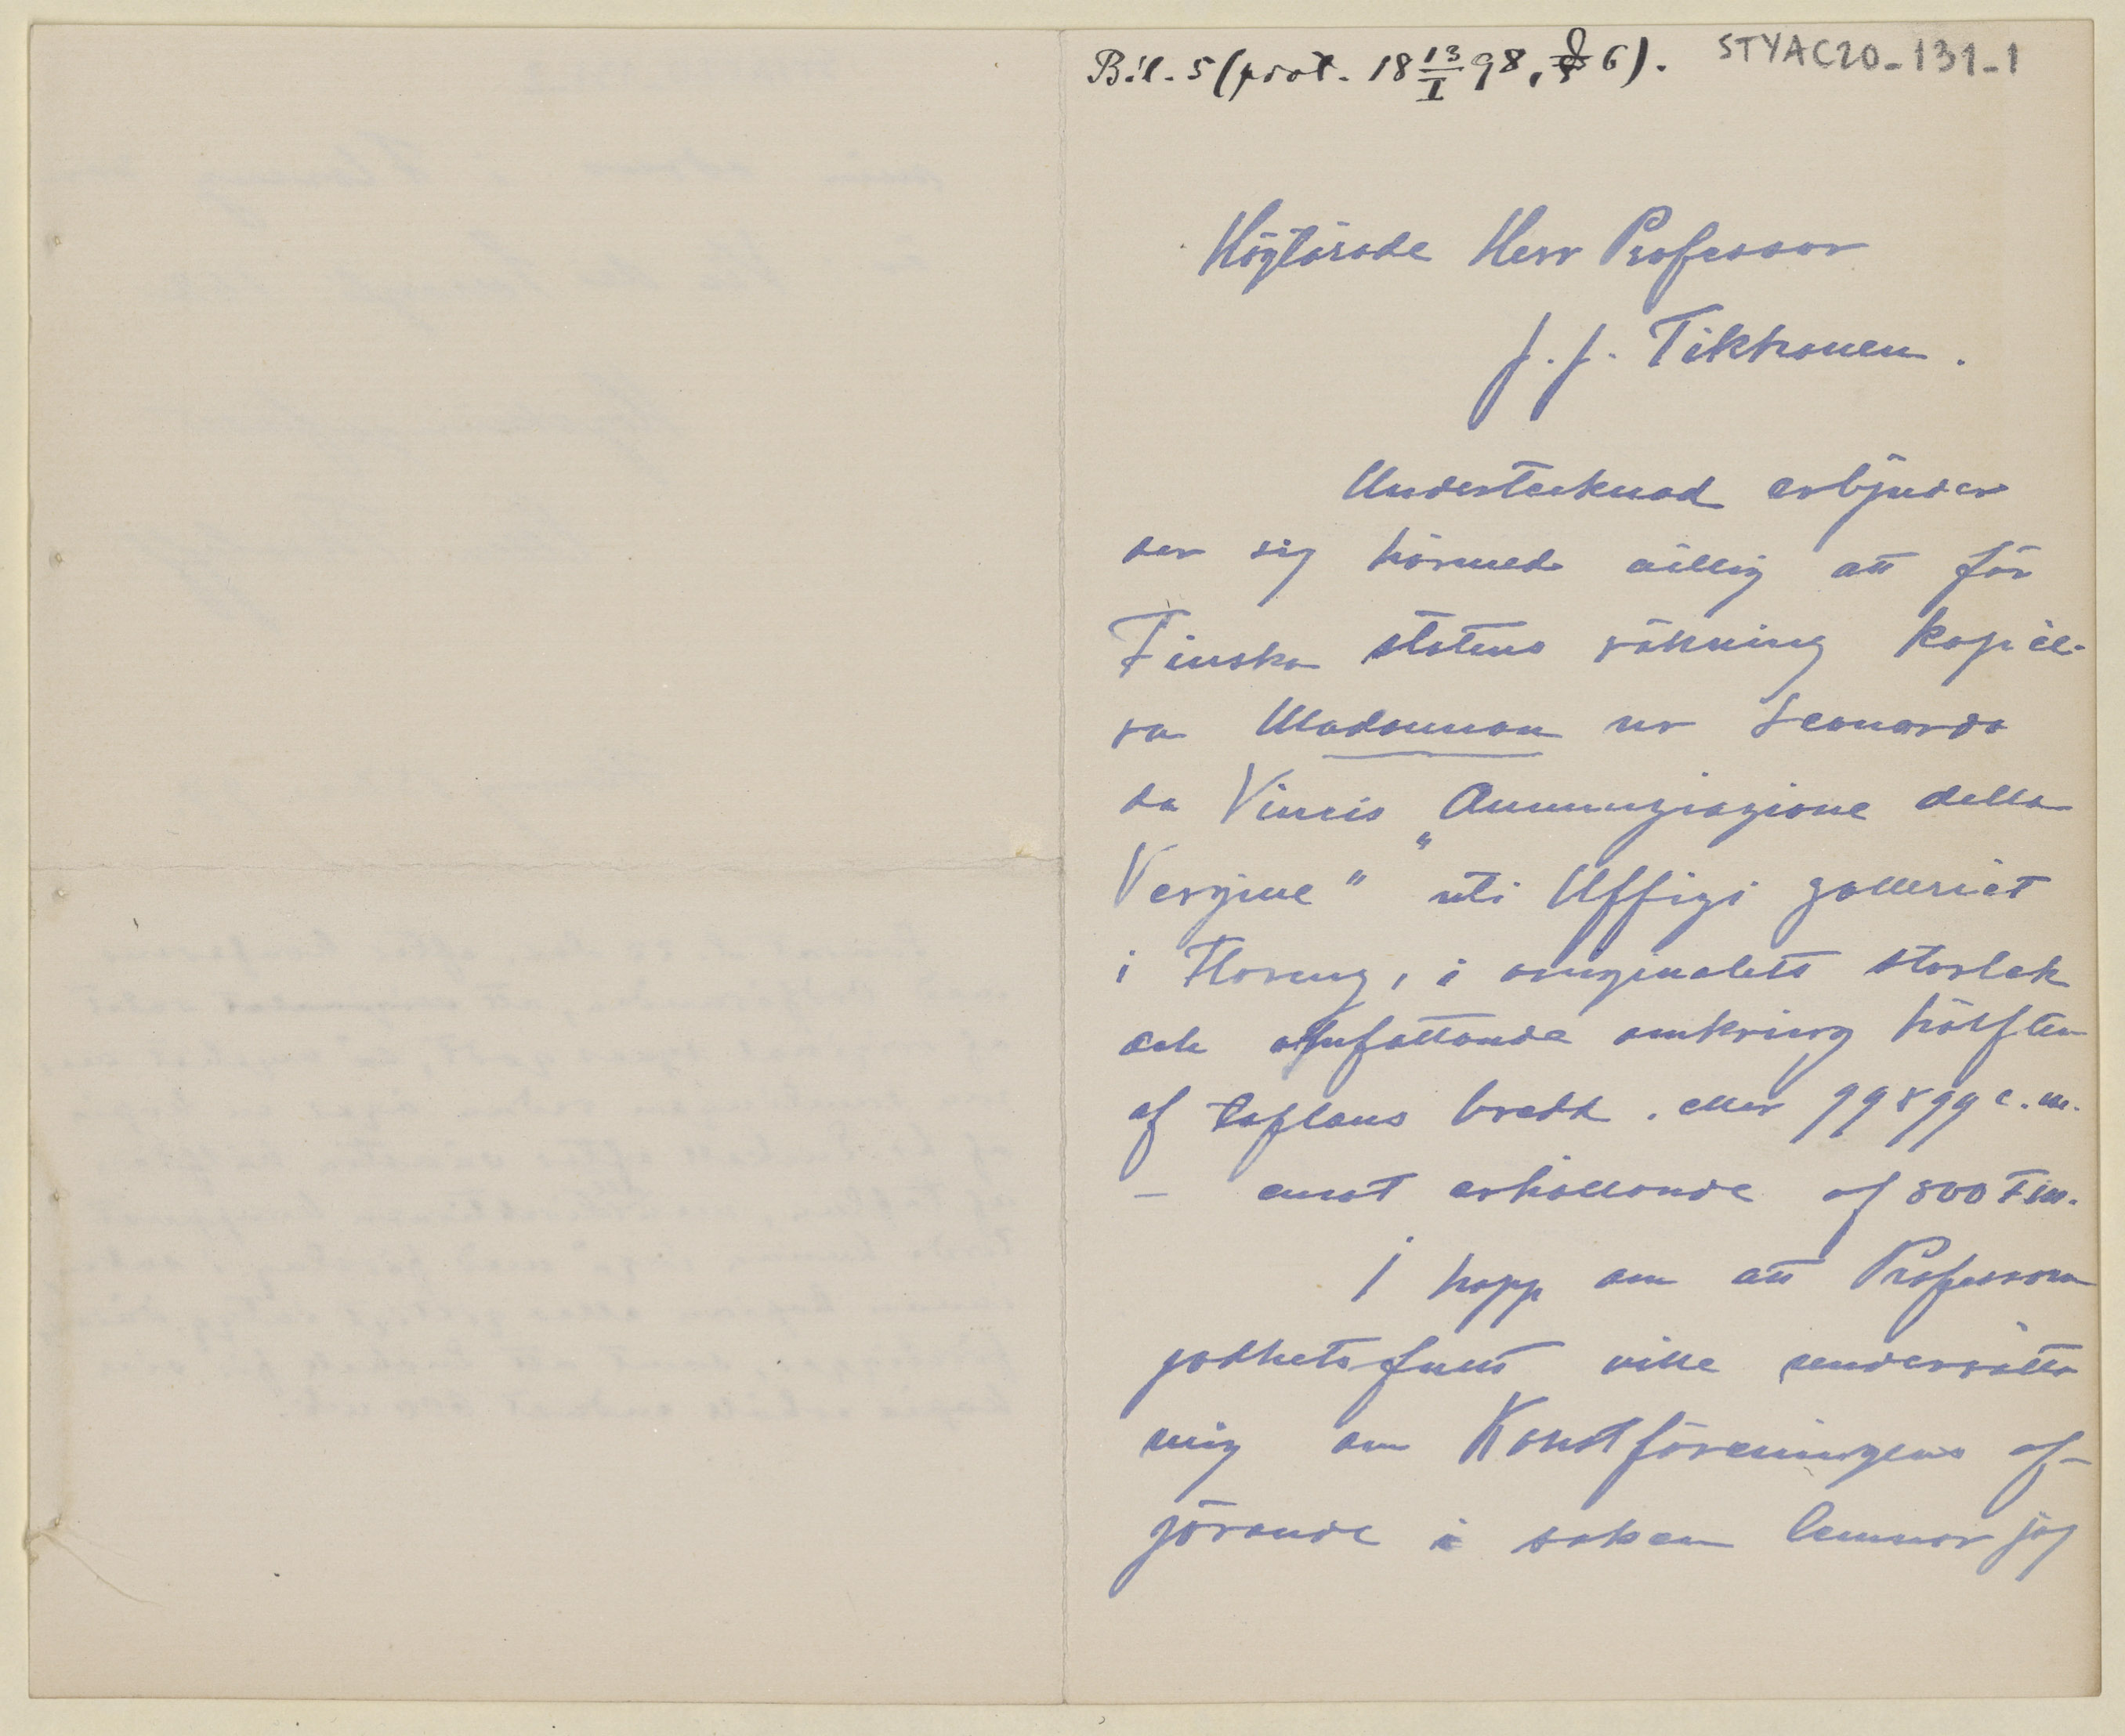 Bil. 5 (prot. 18 13/I 98, § 6).
STYAC20-131-1
Höglärade Herr Professor
J. J. Tikkanen.
Undertecknad erbjuder
der sig härmed villig att för
Finska statens räkning kopie-
ra Madonnan ur Leonardo
da Vincis „Annunziazione della
Vergine" uti Uffizi galleriet
i Florenz, i originalets storlek
och omfattande omkring hälften
af taflans bredd. eller 99 x 99 c.m.
– emot erhållande af 800 Fm.
I hopp om att Professorn
godhetsfullt ville underrätta
mig om Konstföreningens af-
görande i saken lemnar jag